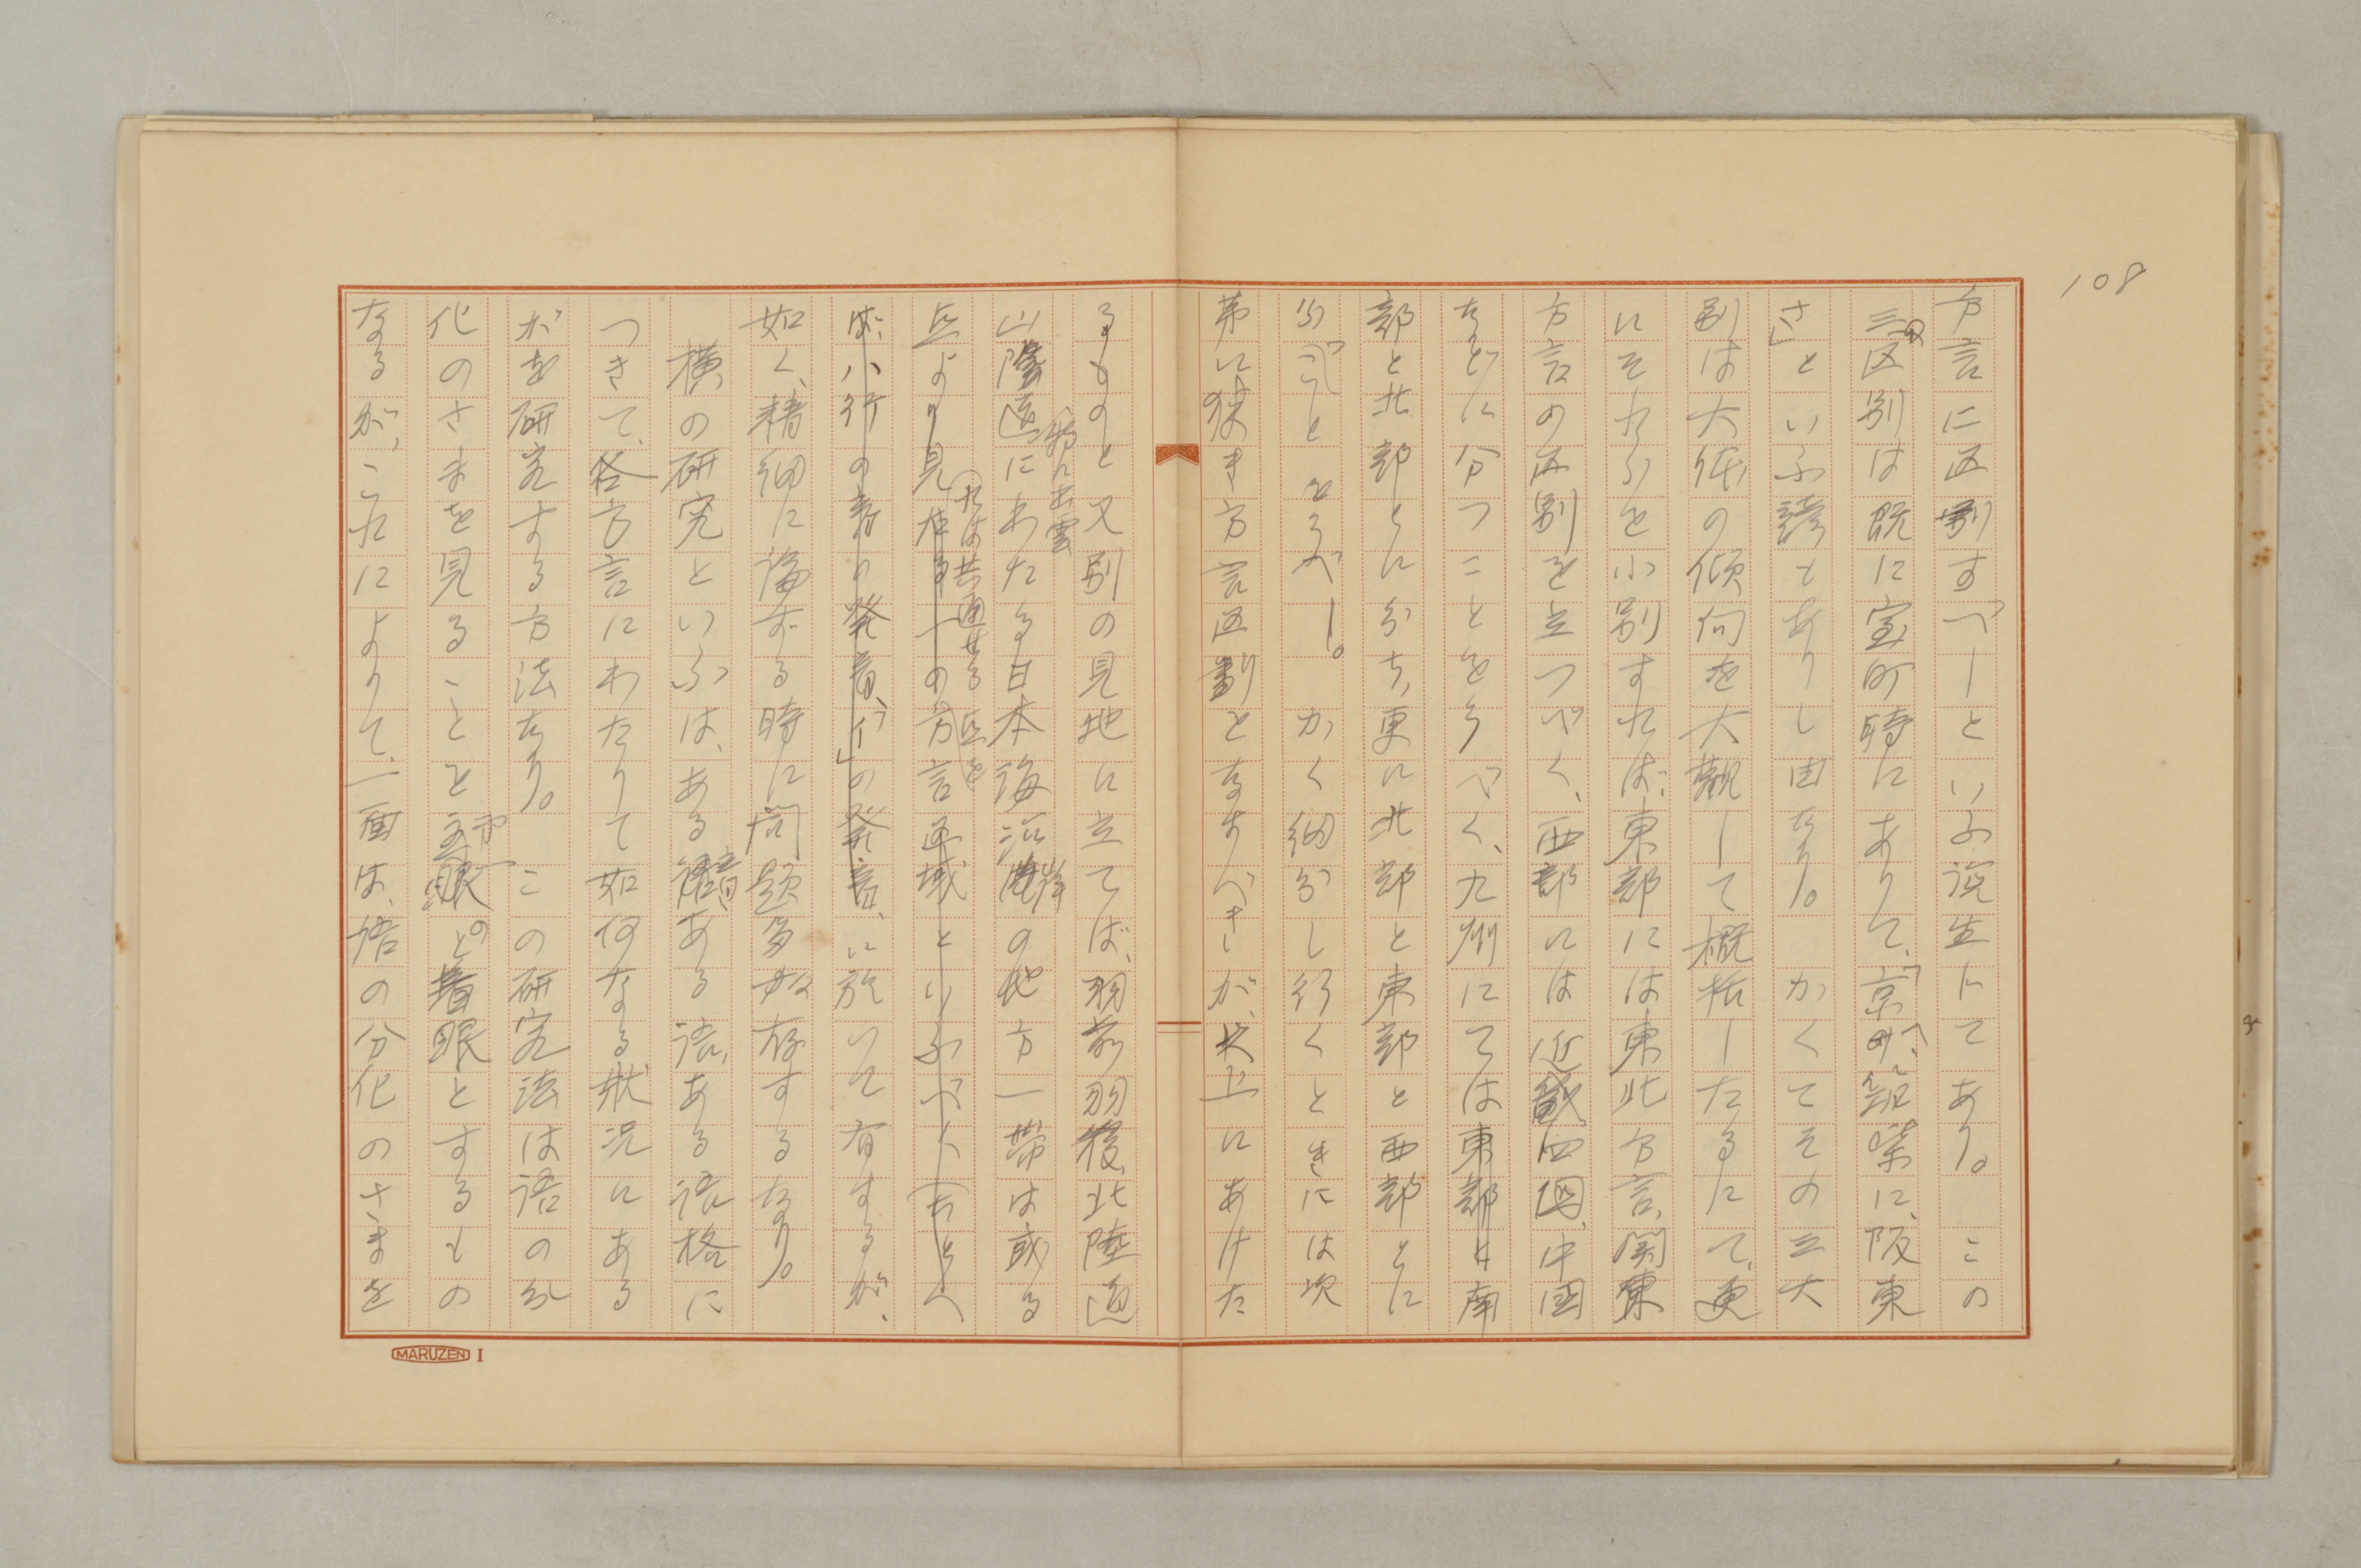 108
方言に区別すべしといふ説生にてあり。この
三の区別は既に室町時にありて、「京へ、筑紫に、阪東
さ」といふ諺もありし由なり。かくてその三大
別は大体の傾向を大観して概括したるにて、更
にそれらを小別すれば、東部には東北方言、関東
方言の区別を立つべく、西部には近畿、四国、中国
などに分つことをうべく、九州にては東部と南
部と北部とに分ち、更に北部と東部と西部とに
分つことをうべし。かく細分し行くときには次
第に狭き方言区劃となすべきが、以上にあげた
るものと又別の見地に立てば、羽前羽後、北陸道
山陰道 特に出雲 にわたる日本海沿岸の地方一帯は或る
点より見 れば共通せる点を 一の方言区域といふべく
ば、ハ行の音の発音、「イ」の発音、に於いて有するが、
如く、精細に論ずる時に問題多数存するなり。
横の研究といふは、ある語音ある語、ある語格に
つきて、各方言にわたりて如何なる状況にある
かを研究する方法なり。この研究法は語の分
化のさまを見ることを主眼の着眼とするもの
なるが、これによりて、一面は、語の分化のさまを
MARUZEN I